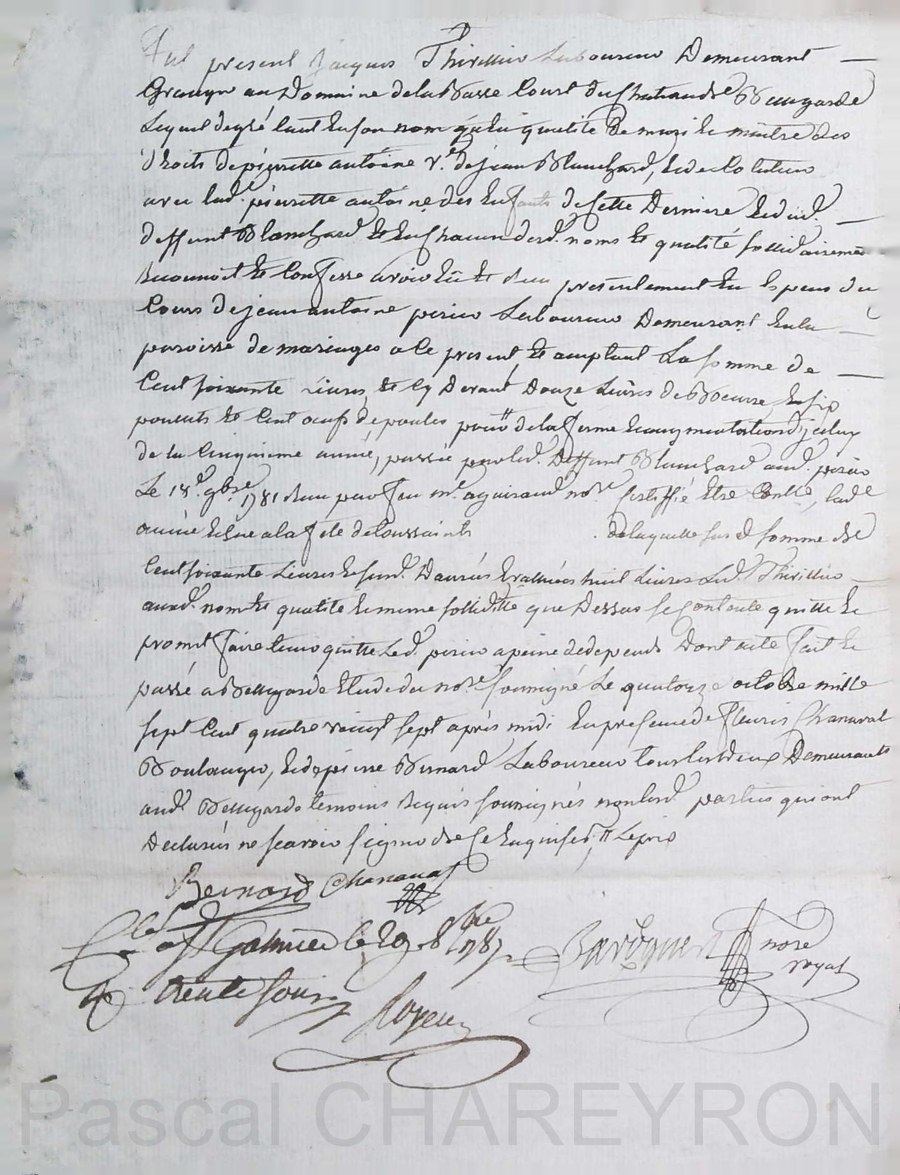 Fut present Jacques Thivillier Laboureur Demeurant
Granger au Domaine de la Basse Court du Chateau de Bellegarde
Lequel de gré tant en son nom qu'en qualité de mari et maitre des
Droits de pierrette antoine v.e de jean Blanchard, et de Co tuteur
avec lad. pierrette antoine des Enfants de Cette Derniere et dud.
deffunt Blanchard et en Chacun desd. noms et qualité sollidairement
Reconnoit et Confesse avoir Eû et Reçu presentement En Espece du
Cours de jean antoine perier Laboureur Demeurant En la
paroisse de maringes a Ce present et acceptant La somme de
Cent soixante Livres, et Cy Devant Douze Livres de Beurre, six
poulets et Cent oeufs de poules pour de la ferme
de la Cinquieme année, passée par led. Deffunt Blanchard aud. perier
Le 18.e 9bre 1781 Reçu par feu m.e aguiraud no.re Certiffié Etre Contllé, lad.e
année Echue a la fete de toussaints de laquelle susd. somme de
Cent soixante Livres Led. Thivillier
auxd. noms et qualité Et meme sollidité que Dessus se Contente quitte Et
promet faire tenir quitte Led. perier a peine de depends Dont acte fait Et
passé a Bellegarde Etude du no.re soussigné Le quatorze octobre mille
sept Cent quatre vingt sept après midi En presence de fleuris Chanavat
Boulanger, et de pierre Bernard Laboureur tous les deux Demeurants
aud. Bellegarde temoins Requis soussignés non lesd. parties qui ont
Declarés ne scavoir signer de Ce Enquises
Bernard Chanavat
Cllé a St Galmier le 29 8bre 1787
BarOquer nore
royal
R. trente sous
Pascal CHAREYRON